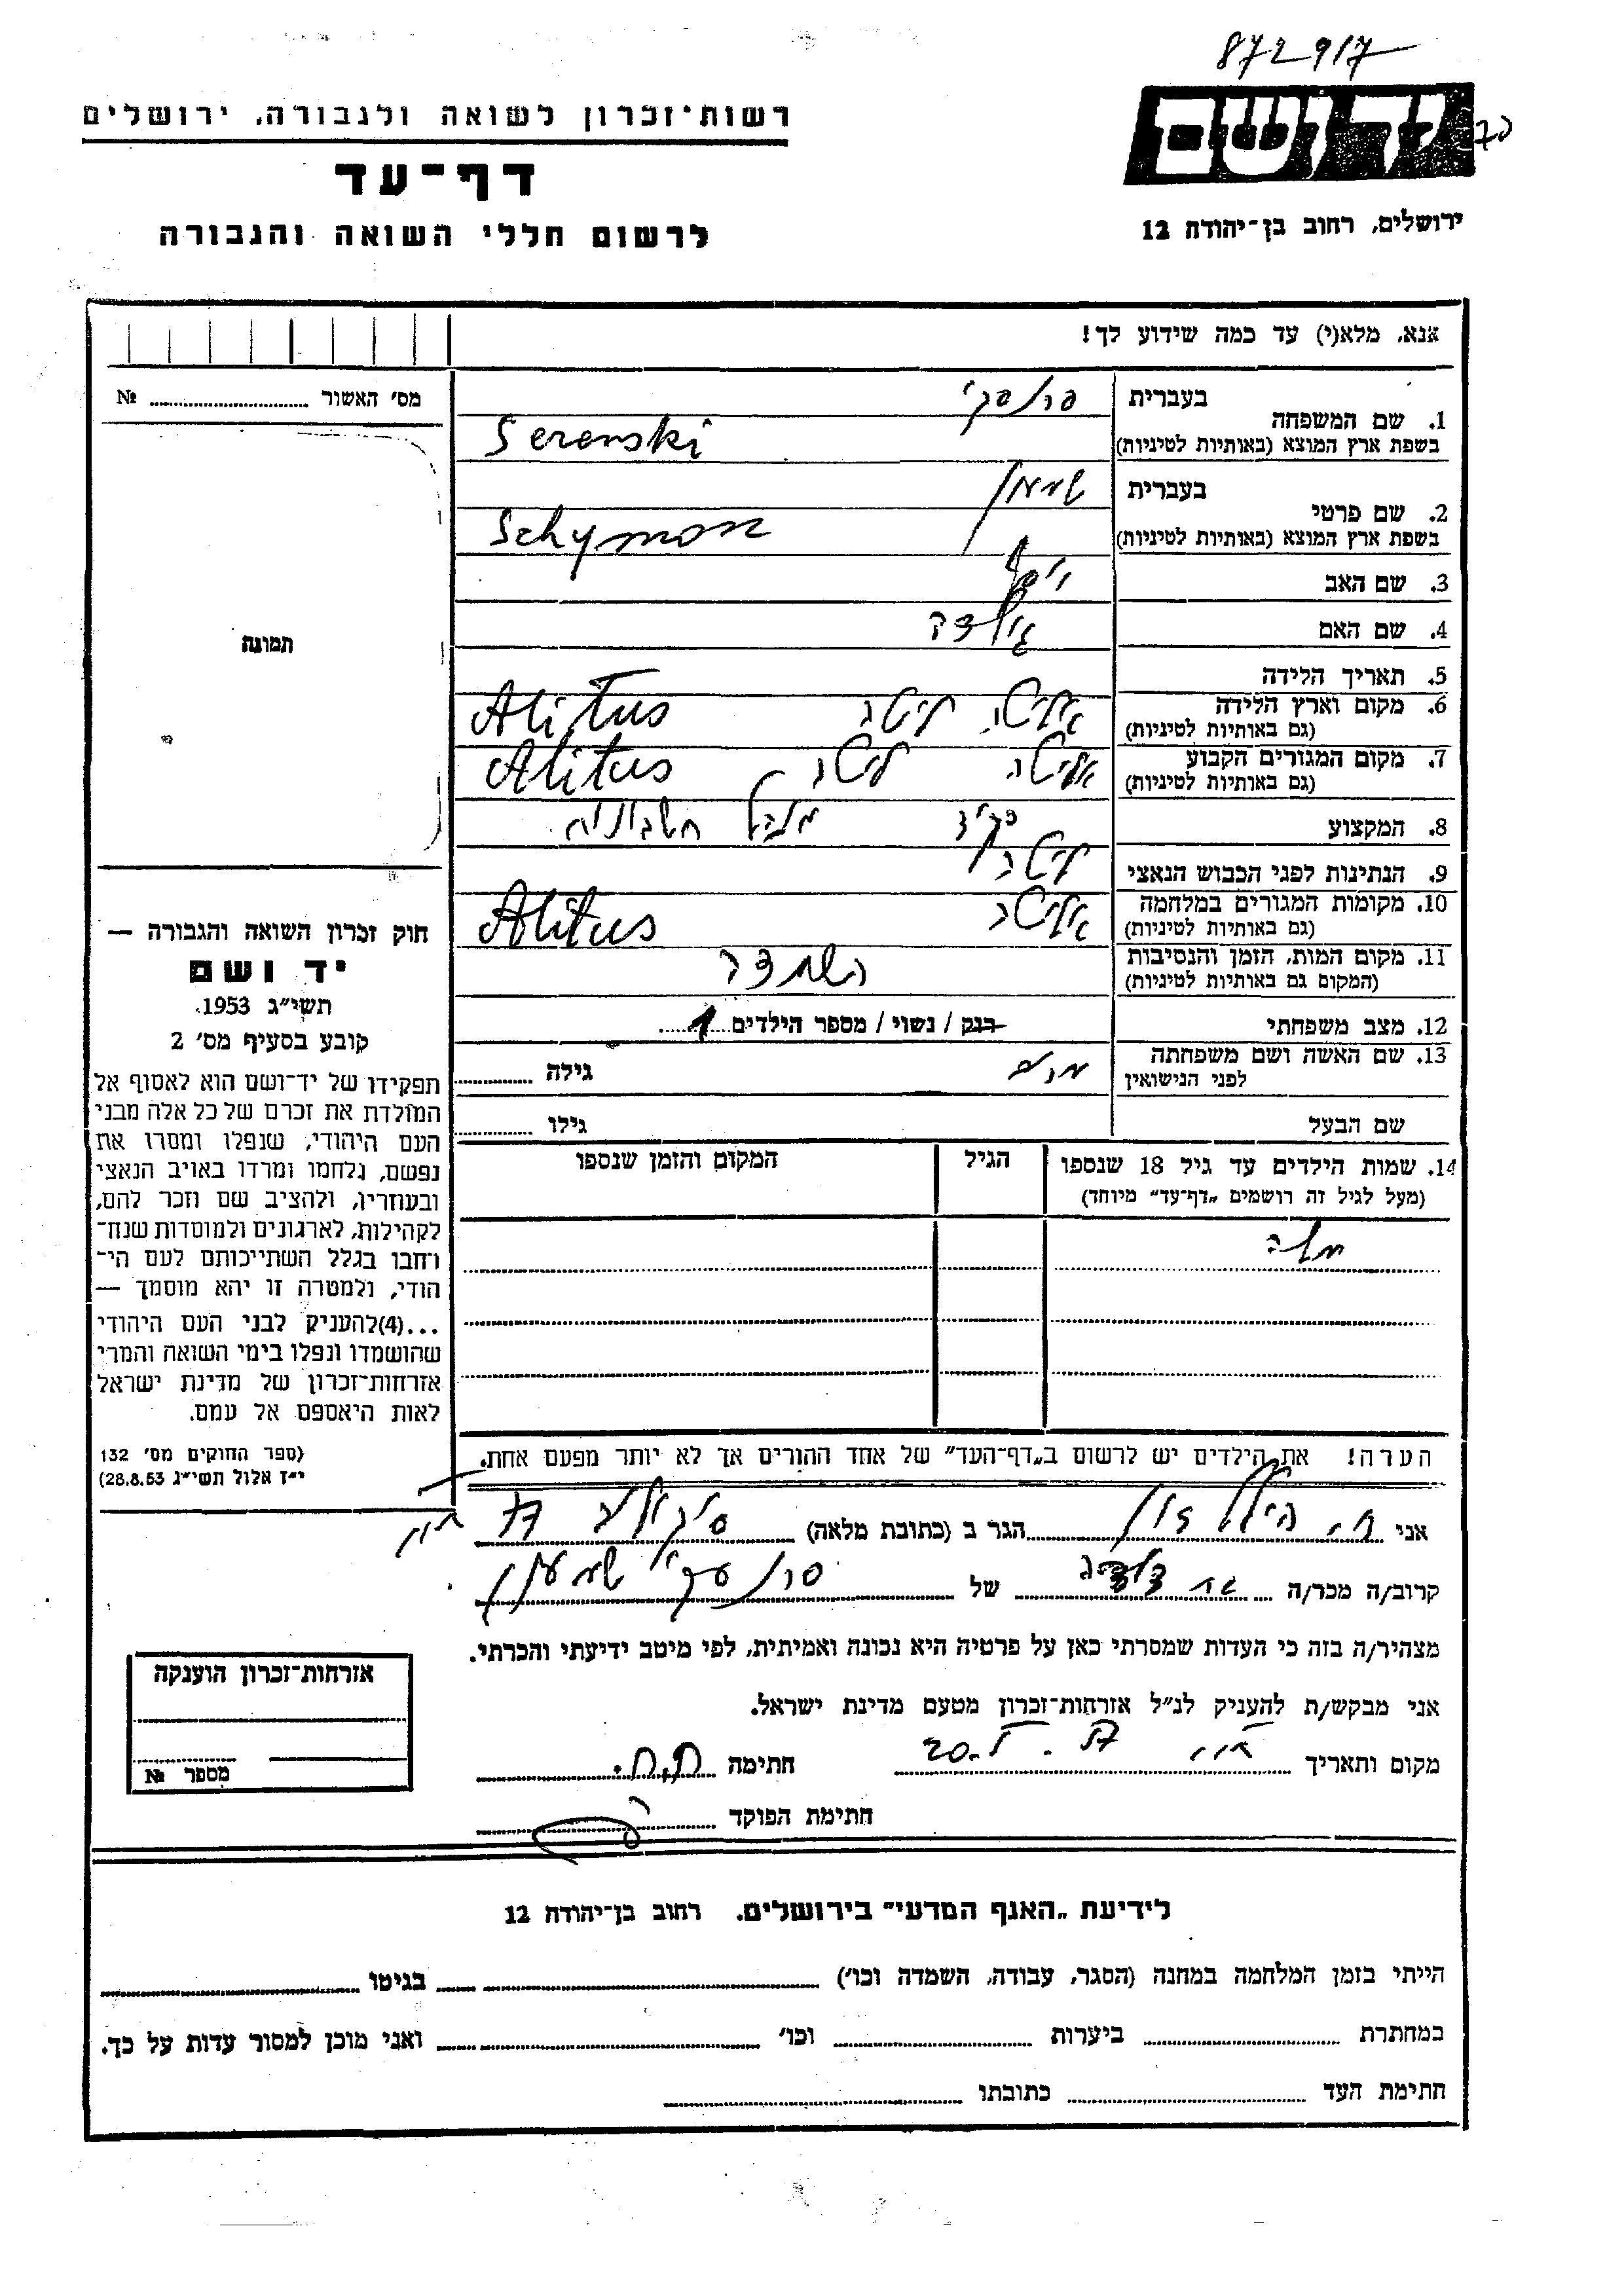 872917
יד ושם
ירושלים, רחוב בן־יהודה 12
רשות־זכרון לשואה ולגבורה, ירושלים
דף־עד
לרשום חללי השואה והגבורה
אנא, מלא(י) עד כמה שידוע לך!
מס' האשור № 
תמונה
חוק זכרון השואה והגבורה —
יד ושם
תשי"ג 1953.
קובע בסעיף מס' 2
תפקידו של יד־ושם הוא לאסוף אל
המולדת את זכרם של כל אלה מבני
העם היהודי, שנפלו ומסרו את
נפשם, נלחמו ומרדו באויב הנאצי
ובעוזריו, ולהציב שם וזכר להם,
לקהילות, לארגונים ולמוסדות שנח־
רחבו בגלל השתייכותם לעם הי־
הודי, ולמטרה זו יהא מוסמך —
...(4)להעניק לבני העם היהודי
שהושמדו ונפלו בימי השואה והמרי
אזרחות־זכרון של מדינת ישראל
לאות היאספם אל עמם.
(ספר החוקים מס' 132
י"ז אלול תשי"ג 28.8.53)
בעברית
1. שם המשפחה
בשפת ארץ המוצא (באותיות לטיניות) Serenski
בעברית שימון
2. שם פרטי
בשפת ארץ המוצא (באותיות לטיניות) Schymon
3. שם האב
4. שם האם
5. תאריך הלידה
6. מקום וארץ הלידה אליטה ליטה Alitus
(גם באותיות לטיניות)
7. מקום המגורים הקבוע אליטה ליטה Alitus
(גם באותיות לטיניות)
8. המקצוע פקיד מנהל חשבונות
9. הנתינות לפני הכבוש הנאצי ליטה
10. מקומות המגורים במלחמה אליטה Alitus
(גם באותיות לטיניות)
11. מקום המות, הזמן והנסיבות השמדה
(המקום גם באותיות לטיניות)
12. מצב משפחתי רנק / נשוי / מספר הילדים 1
13. שם האשה ושם משפחתה גילה
לפני הנישואין
שם הבעל גילו
14. שמות הילדים עד גיל 18 שנספו הגיל המקום והזמן שנספו
(מעל לגיל זה רושמים „דף־עד" מיוחד)
הערה! את הילדים יש לרשום ב„דף־העד" של אחד ההורים אך לא יותר מפעם אחת.
אני הגר ב (כתובת מלאה)
קרוב/ה מכר/ה של
מצהיר/ה בזה כי העדות שמסרתי כאן על פרטיה היא נכונה ואמיתית, לפי מיטב ידיעתי והכרתי.
אני מבקש/ת להעניק לנ"ל אזרחות־זכרון מטעם מדינת ישראל.
מקום ותאריך חתימה
חתימת הפוקד
אזרחות־זכרון הוענקה
מספר №
לידיעת „האגף המדעי" בירושלים. רחוב בן־יהודה 12
הייתי בזמן המלחמה במחנה (הסגר, עבודה, השמדה וכו') בגיטו
במחתרת ביערות וכו' ואני מוכן למסור עדות על כך.
חתימת העד כתובתו